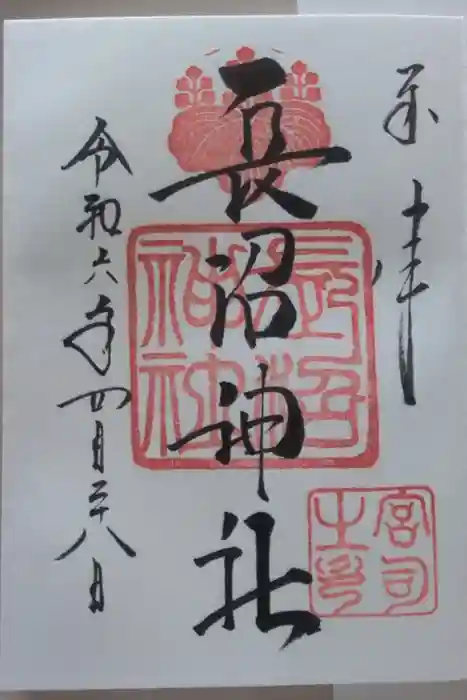 奉拝
長沼神社
令和六年四月二十八日
長沼
神社
宮司
之印